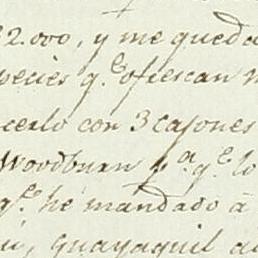 2.000, y me queda
pecies q.e ofrescan
cerlo con 3 cajones
Woodburn p.a q.e lo
q.e he mandado à
Guayaquil